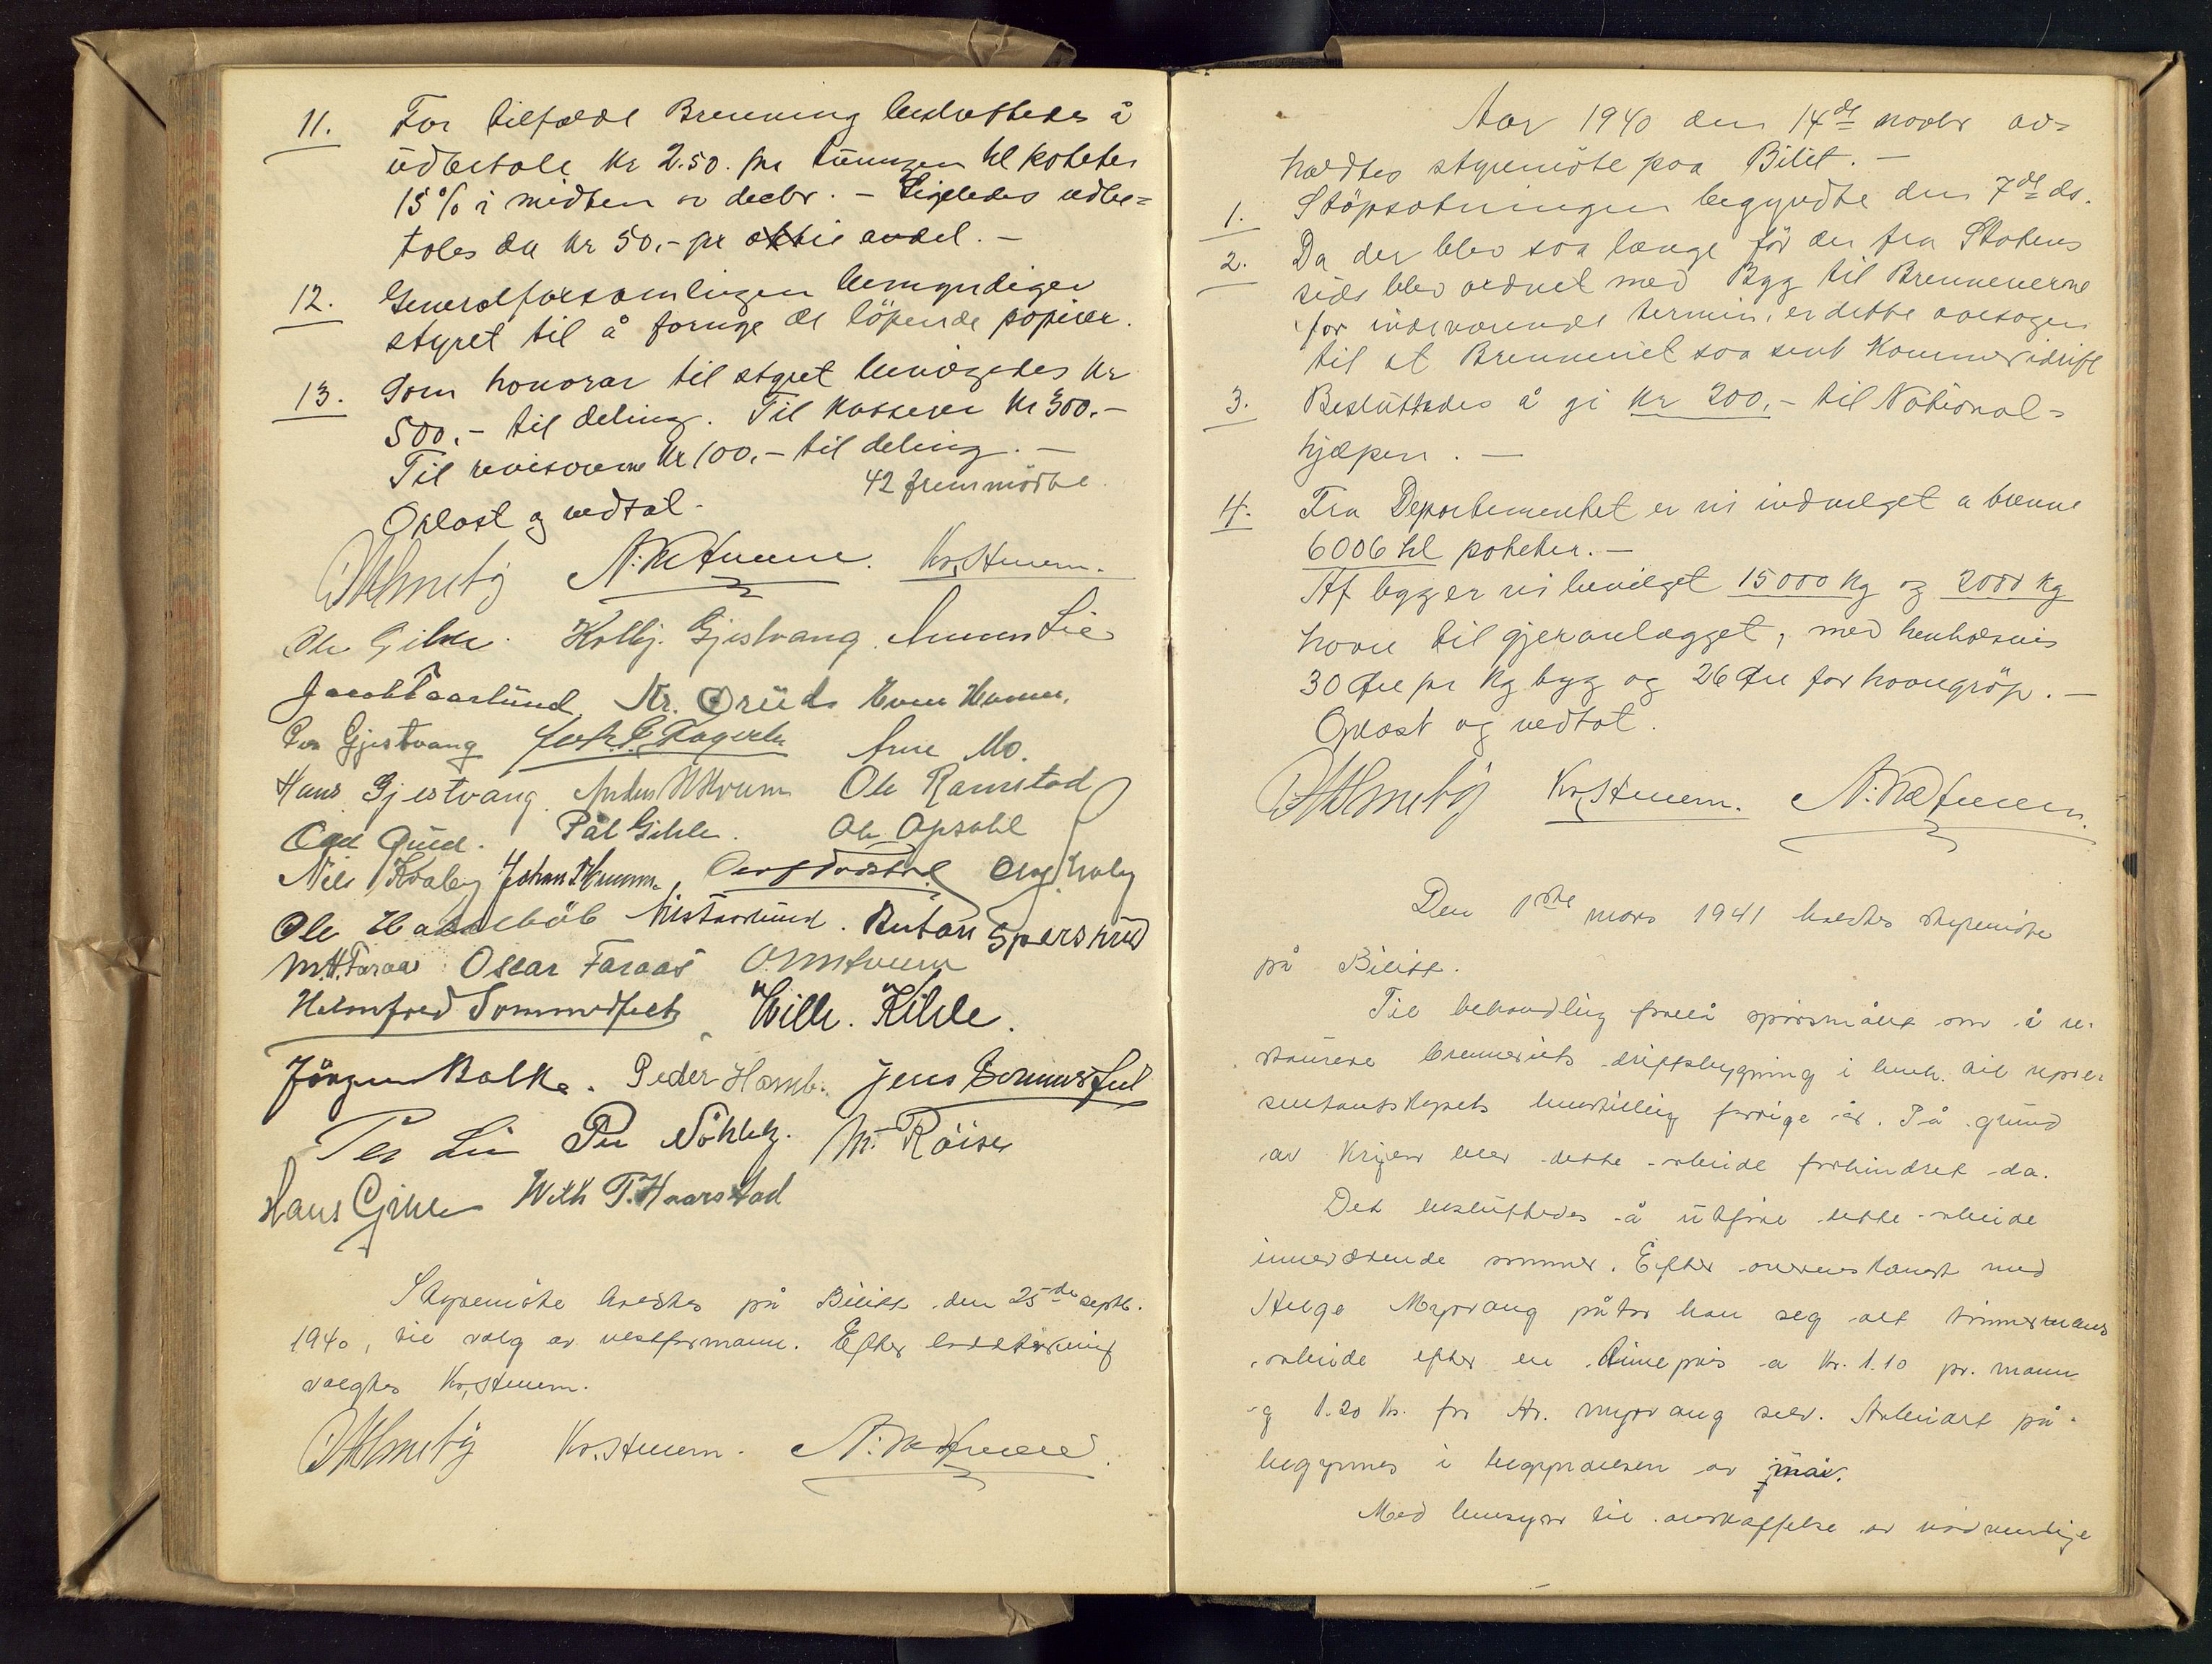 11. For tilfælde Brenning besluttedes å
udbetale kr 2.50. pr tünnge hl poteter
15% i midten av decbr. - Ligeledes udbe=
tales da kr 50,- pr aktie andel. -
12. Generalforsamlingen bemyndiger
styret til å fornye de löpende papirer.
13. Som honorar til styret bevilgedes kr
500.- til deling. Til kasserer kr 300.-
Til revisorerne kr 100,- til deling. -
42 fremmödte.
Oplæst og vedtat.
Kr. Stenem.
Ole Gihle. Kolbj. Gjestvang. Lie
Jacob Paarlünd Kr. Grüd
Gjestvang Joh. E. Fagerli Arne Mo.
Hans Gjestvang. Ole Ramstad
Pål Gihle. Ole Opsahl
Nils Kvaby Johan
Ole Anton Sperstrüd
M. H. Faraas Oscar Faraas
Helmfred Sommerfelt Wilh. Kihle.
Jörgen Balke. Peder Jens Sommerfelt
Per Lie Per M. Röise
Hans Gihle Wilh P. Haarstad
Styremöte holdtes på Bilitt den 25de septb.
1940, til valg av viseformann. Efter
valgtes Kr. Stenem.
Kr. Stenem.
Aar 1940 den 14de novbr av=
holdtes styremöte paa Bilit. -
1. Stöpsætningen begyndte den 7de ds.
2. Da der blev saa længe för der fra Statens
side blev ordnet med Byg til Brennerierne
for indeværende termin, er dette aarsagen
til at Brenneriet saa sent kommer idrift
3. Besluttedes å gi kr 200,- til National=
hjælpen. -
4. Fra Departementet er vi indvilget a brenne
6006 hl poteter. -
Af byg er vi bevilget 15000 kg og 2000 kg
havre til gjæranlægget, med henholdsvis
30 Øre pr kg byg og 26 Øre for havregröp. -
Oplæst og vedtat.
Kr. Stenem.
Den 1ste mars 1941 holdtes styremöte
på Bilitt.
Til behandling forelå spörsmålet om å re-
staurere brenneriets driftsbygning i henh. til repre-
sentantskapets innstilling forrige år. På grund
av krigen blev dette arbeide forhindret da.
Det besluttedes å utföre dette arbeide
inneværende sommer. Efter overenskomst med
Helge Myrvang påtar han seg alt timmermans
arbeide efter en timepris a kr. 1.10 pr. mann
og 1.20 kr. for Hr. Myrvang selv. Arbeidet på-
begynnes i begynnelsen av mai.
Med hensyn til anskaffelse av nödvendige